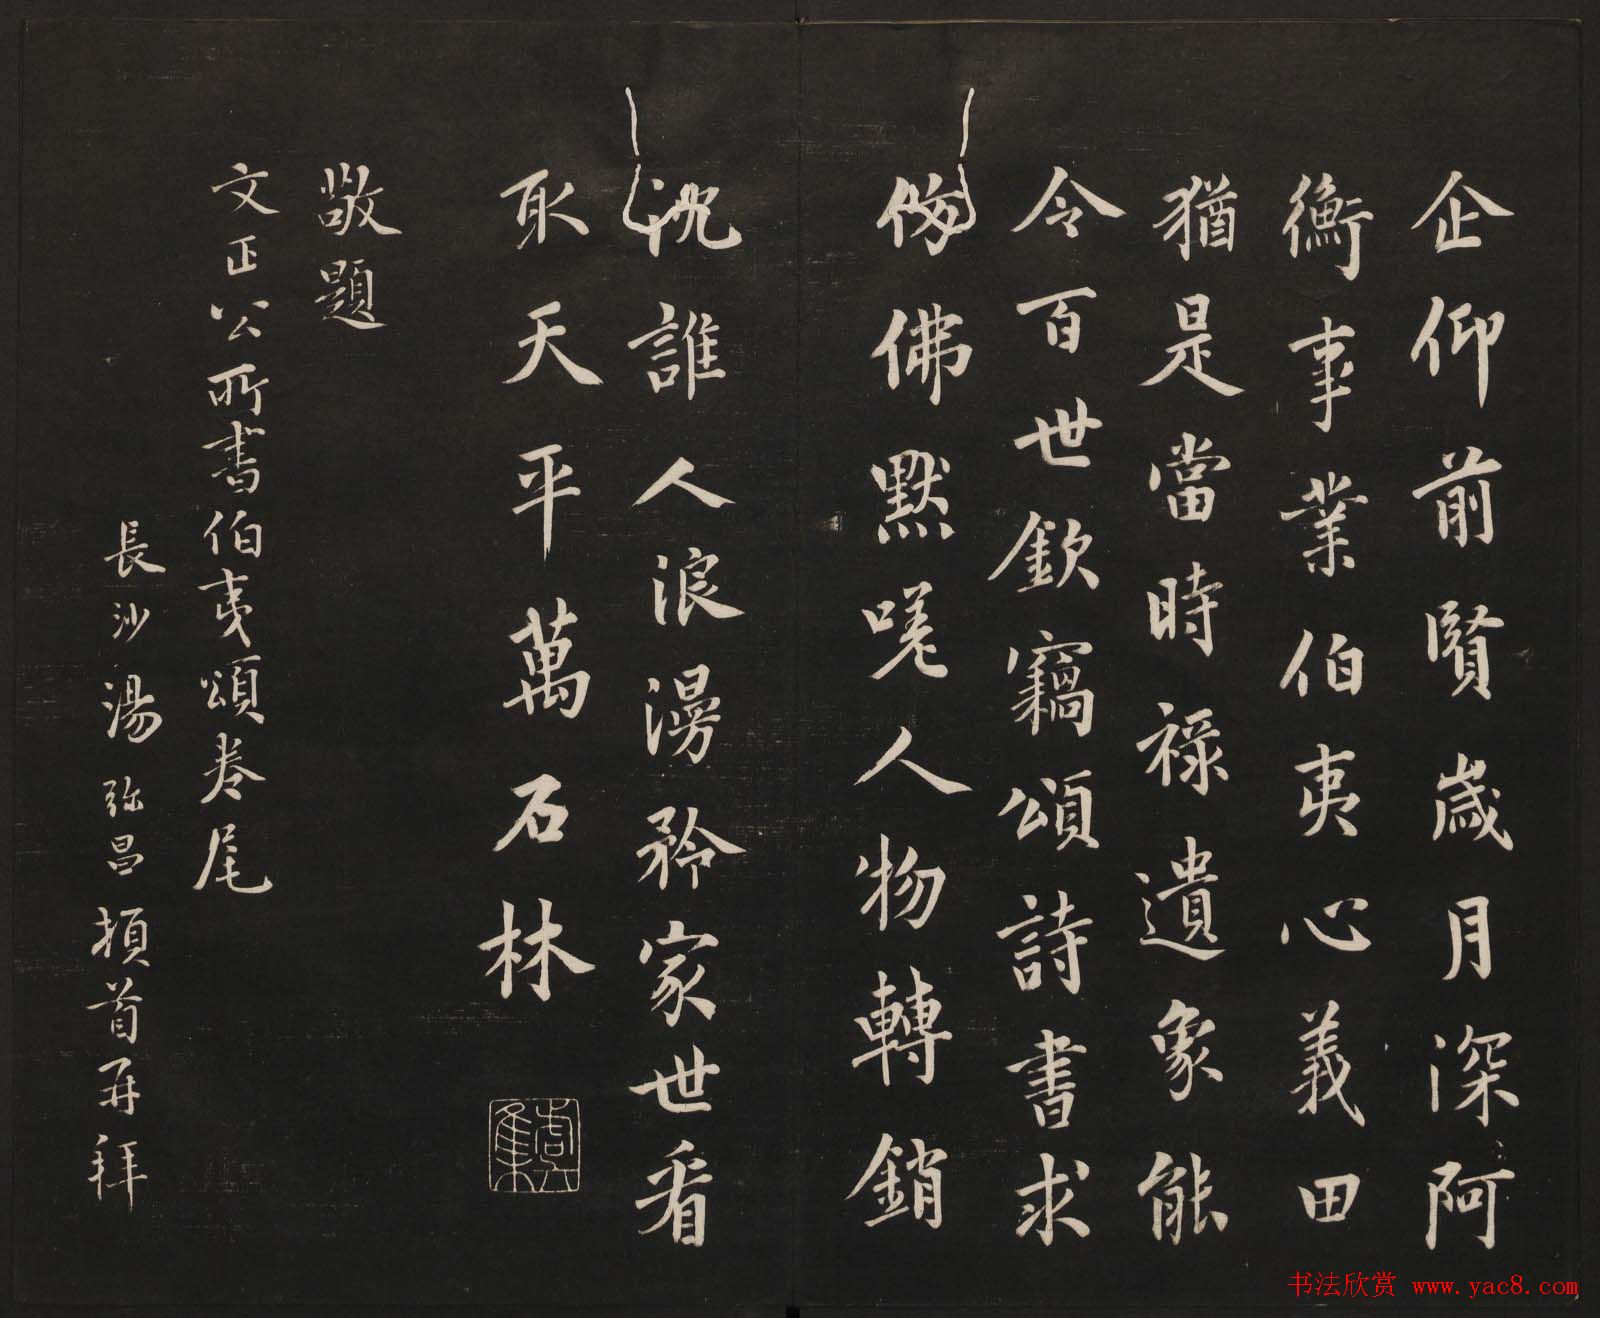 企仰前賢歲月深阿
衡事業伯夷心義田
猶是當時祿遺象能
令百世欽竊頌詩書求
仿佛默嗟人物轉銷
沈誰人浪漫矜家世看
取天平萬石林
敬題
文正公所書伯夷頌卷尾
長沙湯弥昌頓首再拜
虞集
书法欣赏 www.yac8.com